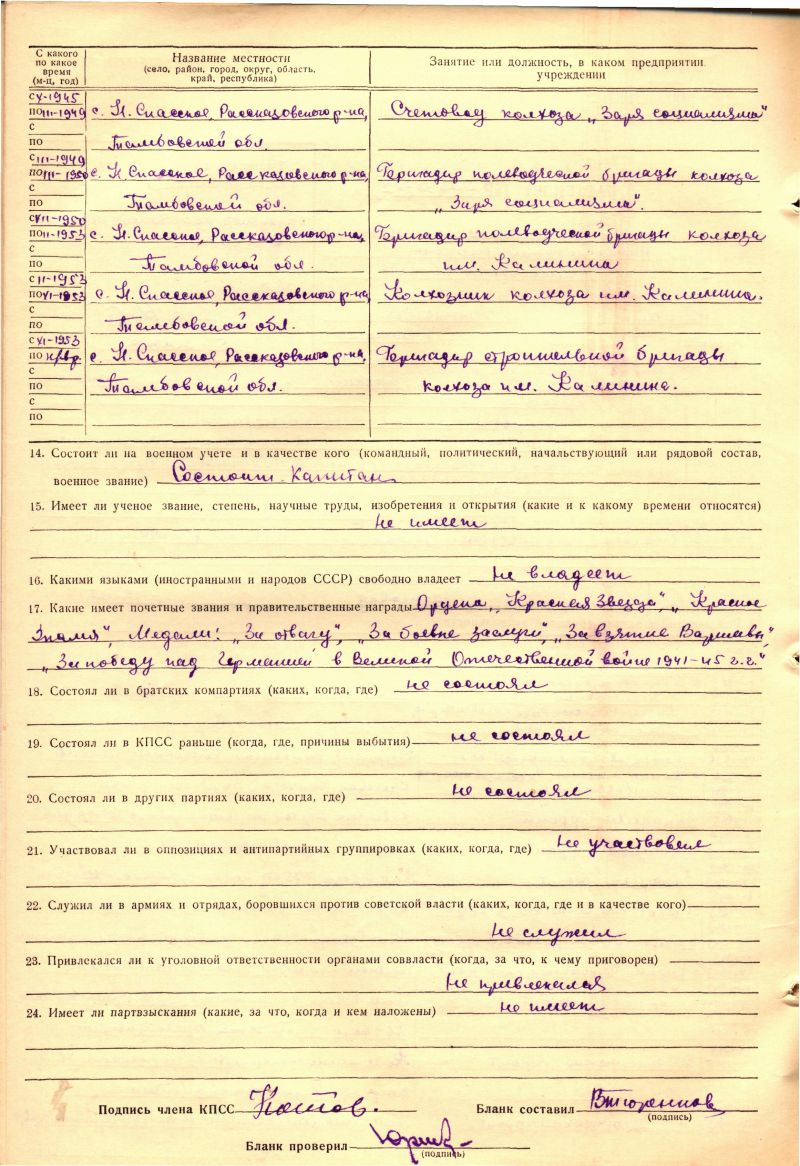 С какого
по какое
время
(м-ц, год)
Название местности
(село, район, город, округ, область,
край, республика)
Занятие или должность, в каком предприятии
учреждении
с X-1945
по III-1949 с. Н. Спасское, Рассказовского р-на, Счетовод колхоза „Заря социализма"
с
по Тамбовской обл.
с III-1949
по III-1950 с. Н. Спасское, Рассказовского р-на, Бригадир полеводческой бригады колхоза
с
по Тамбовской обл. „Заря социализма".
с VII-1950
по II-1953 с. Н. Спасское, Рассказовского р-на, Бригадир полеводческой бригады колхоза
с
по Тамбовской обл. им. Калинина
с II-1953
по XI-1953 с. Н. Спасское, Рассказовского р-на, Колхозник колхоза им. Калинина.
с
по Тамбовской обл.
с XI-1953
по н/вр. с. Н. Спасское, Рассказовского р-на, Бригадир строительной бригады
с
по Тамбовской обл. колхоза им. Калинина.
с
по
14. Состоит ли на военном учете и в качестве кого (командный, политический, начальствующий или рядовой состав,
военное звание) Состоит. Капитан
15. Имеет ли ученое звание, степень, научные труды, изобретения и открытия (какие и к какому времени относятся)
Не имеет
16. Какими языками (иностранными и народов СССР) свободно владеет Не владеет
17. Какие имеет почетные звания и правительственные награды Ордена „Красная Звезда", „Красное
Знамя", Медали: „За отвагу", „За боевые заслуги", „За взятие Варшавы",
„За победу над Германией в Великой Отечественной войне 1941-45 г.г."
18. Состоял ли в братских компартиях (каких, когда, где) не состоял
19. Состоял ли в КПСС раньше (когда, где, причины выбытия) не состоял
20. Состоял ли в других партиях (каких, когда, где) не состоял
21. Участвовал ли в оппозициях и антипартийных группировках (каких, когда, где) Не участвовал
22. Служил ли в армиях и отрядах, боровшихся против советской власти (каких, когда, где и в качестве кого)
Не служил
23. Привлекался ли к уголовной ответственности органами соввласти (когда, за что, к чему приговорен)
Не привлекался
24. Имеет ли партвзыскания (какие, за что, когда и кем наложены) не имеет
Подпись члена КПСС Бланк составил
(подпись)
Бланк проверил
(подпись)